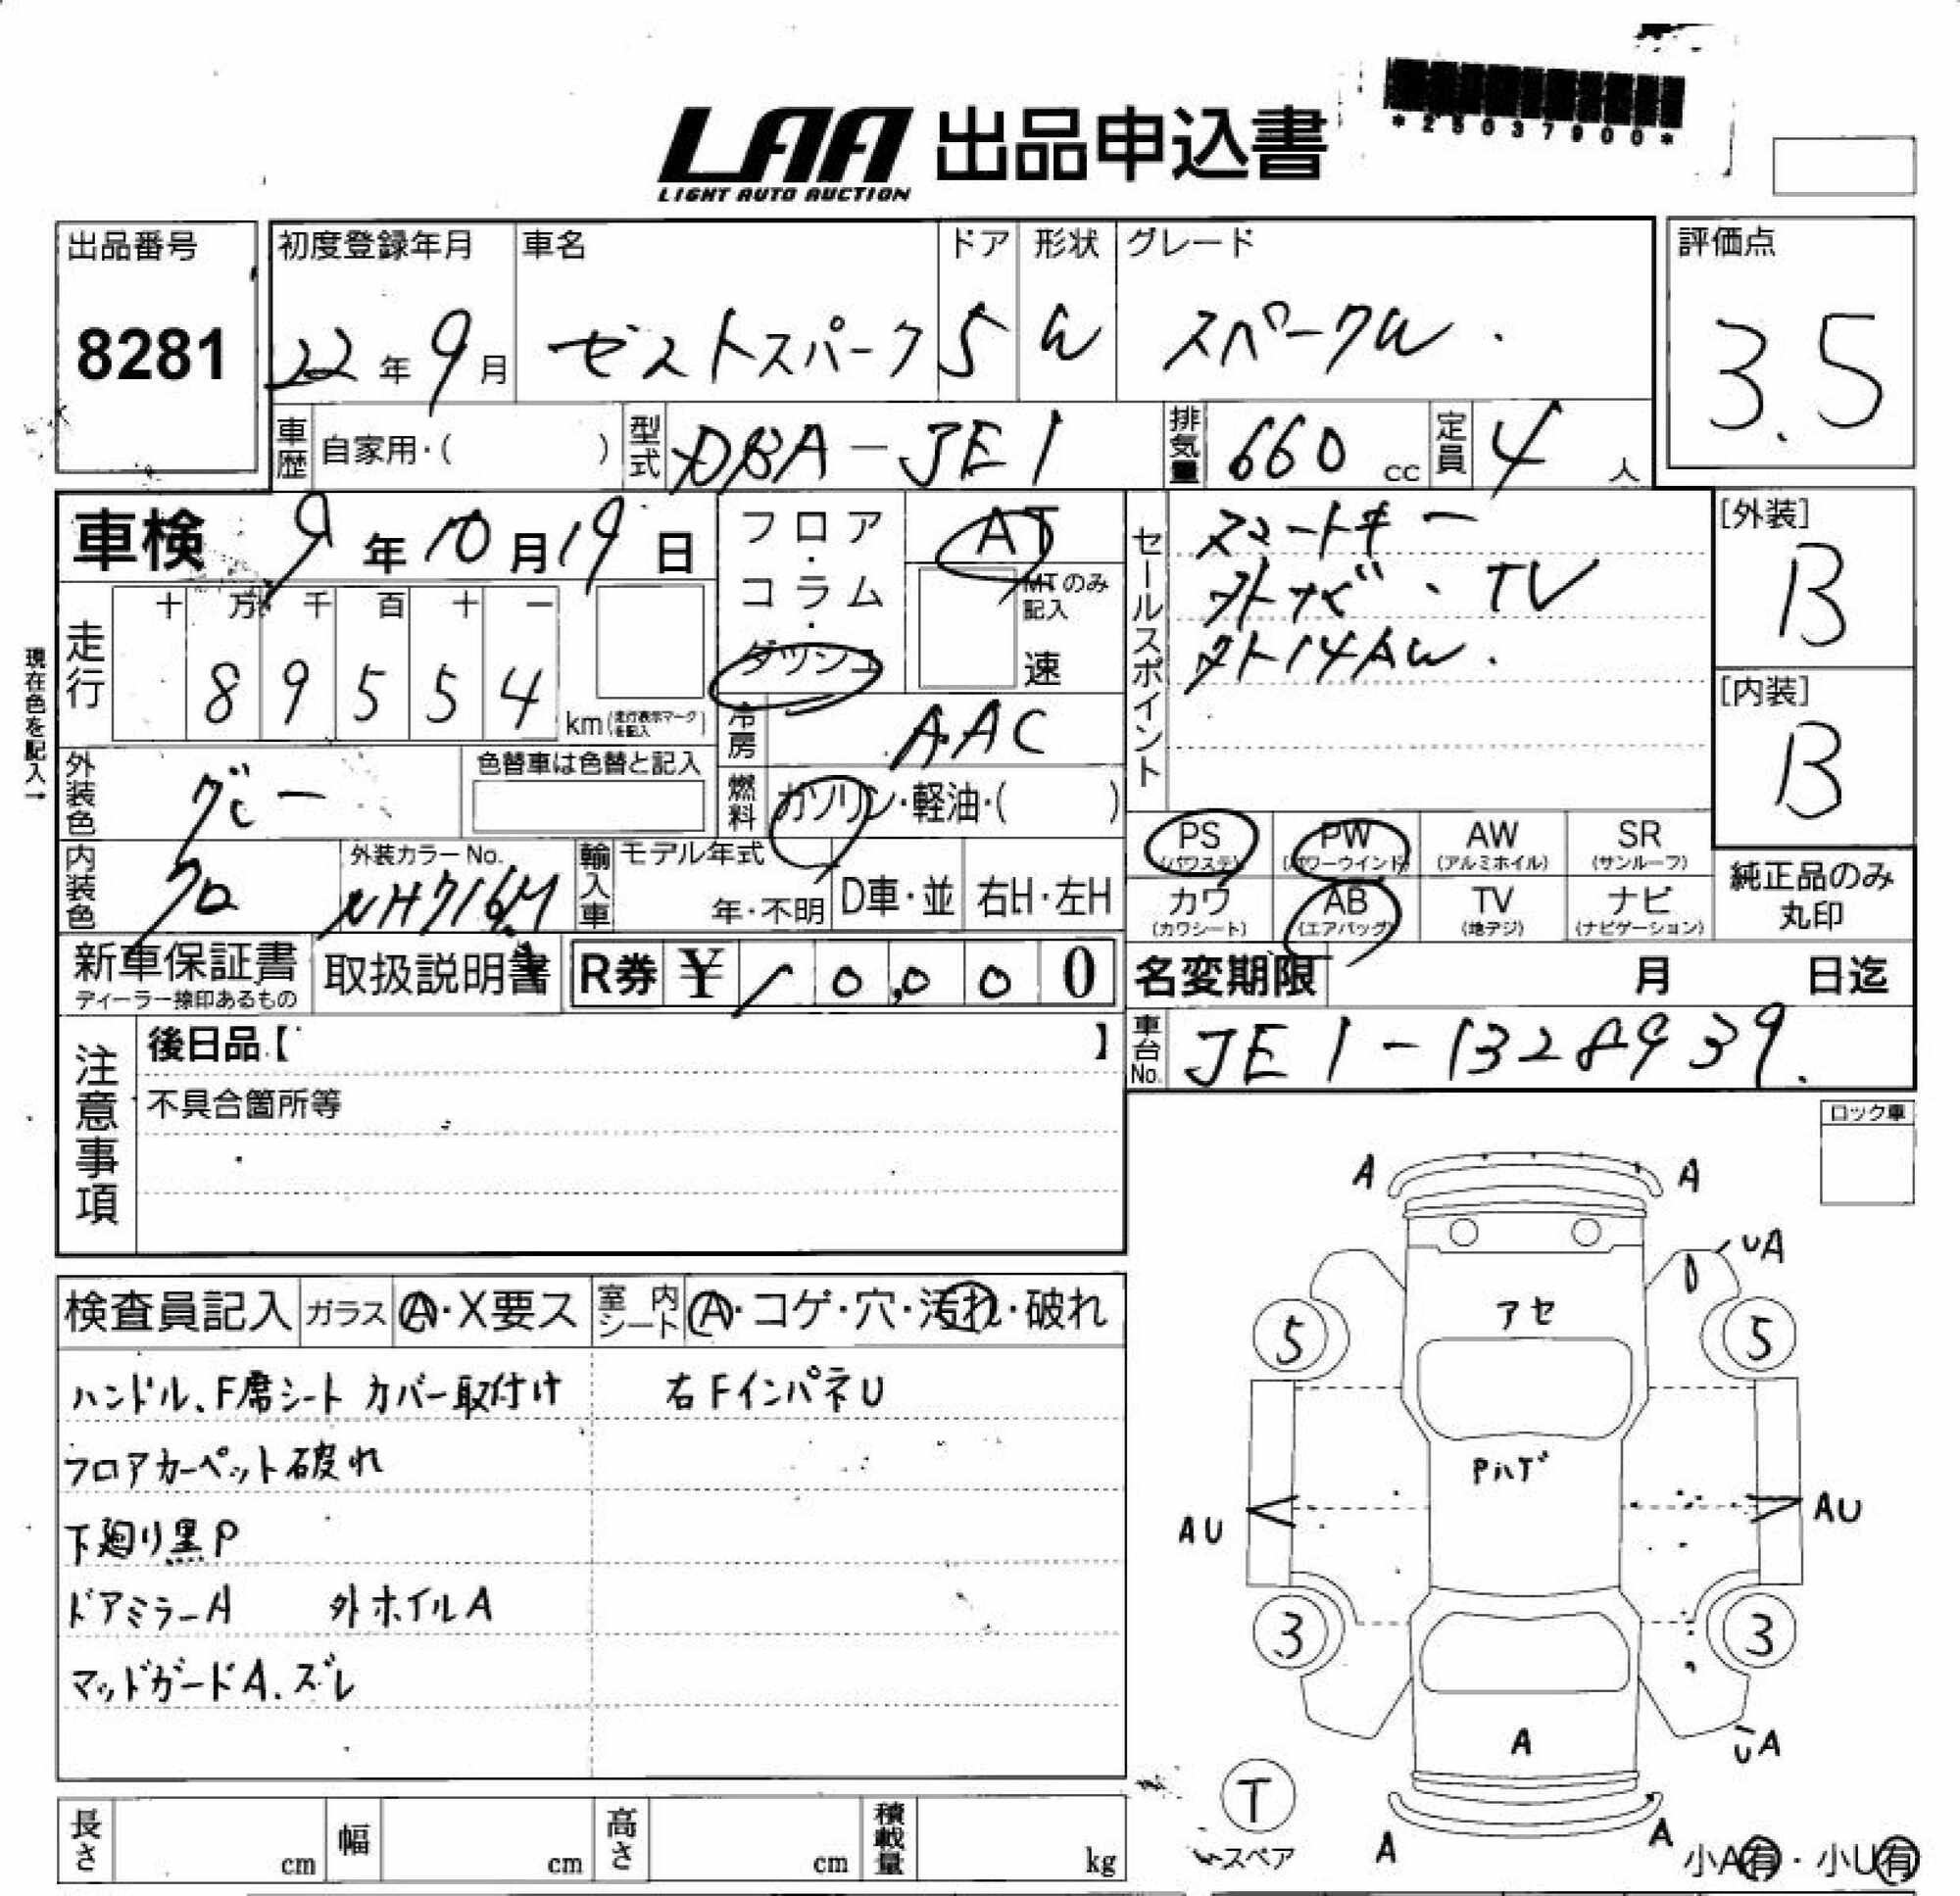 *25037900*
LAA 出品申込書
LIGHT AUTO AUCTION
出品番号
8281
初度登録年月 車名 ドア 形状 グレード
22年 9月 ゼストスパーク 5 W スパークW.
評価点
3.5
車歴 自家用・( ) 型式 DBA-JE1 排気量 660 cc 定員 4 人
車検 9年10月19日
フロア・コラム・ダッシュ
AT
MTのみ記入
速
現在色を記入→
走行
十 万 千 百 十 一
8 9 5 5 4
km(走行表示マークを記入)
冷房 AAC
燃料 ガソリン・軽油・( )
セールスポイント
スマートキー
外ナビ・TV
外14AW.
[外装]
B
[内装]
B
外装色 グレー
色替車は色替と記入
内装色 クロ
外装カラーNo.
NH716M
輸入車 モデル年式
年・不明 D車・並 右H・左H
PS (パワステ) PW (パワーウインド) AW (アルミホイル) SR (サンルーフ)
カワ (カワシート) AB (エアバッグ) TV (地デジ) ナビ (ナビゲーション)
純正品のみ
丸印
新車保証書
ディーラー捺印あるもの
取扱説明書
R券 ¥ 10,000
名変期限 月 日迄
車台No. JE1-1328939.
注意事項
後日品【 】
不具合箇所等
ロック車
検査員記入 ガラス A・X要ス 室内シート A・コゲ・穴・汚れ・破れ
ハンドル、F席シート カバー取付け 右FインパネU
フロアカーペット破れ
下廻り黒P
ドアミラーA 外ホイルA
マッドガードA.ズレ
A A
UA
アセ
5 5
Pハゲ
AU AU
3 3
A
UA
T
スペア
A A
小A有・小U有
長さ cm 幅 cm 高さ cm 積載量 kg